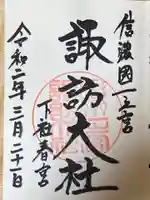 信濃國一之宮
諏訪大社
下社春宮
令和二年三月二十一日